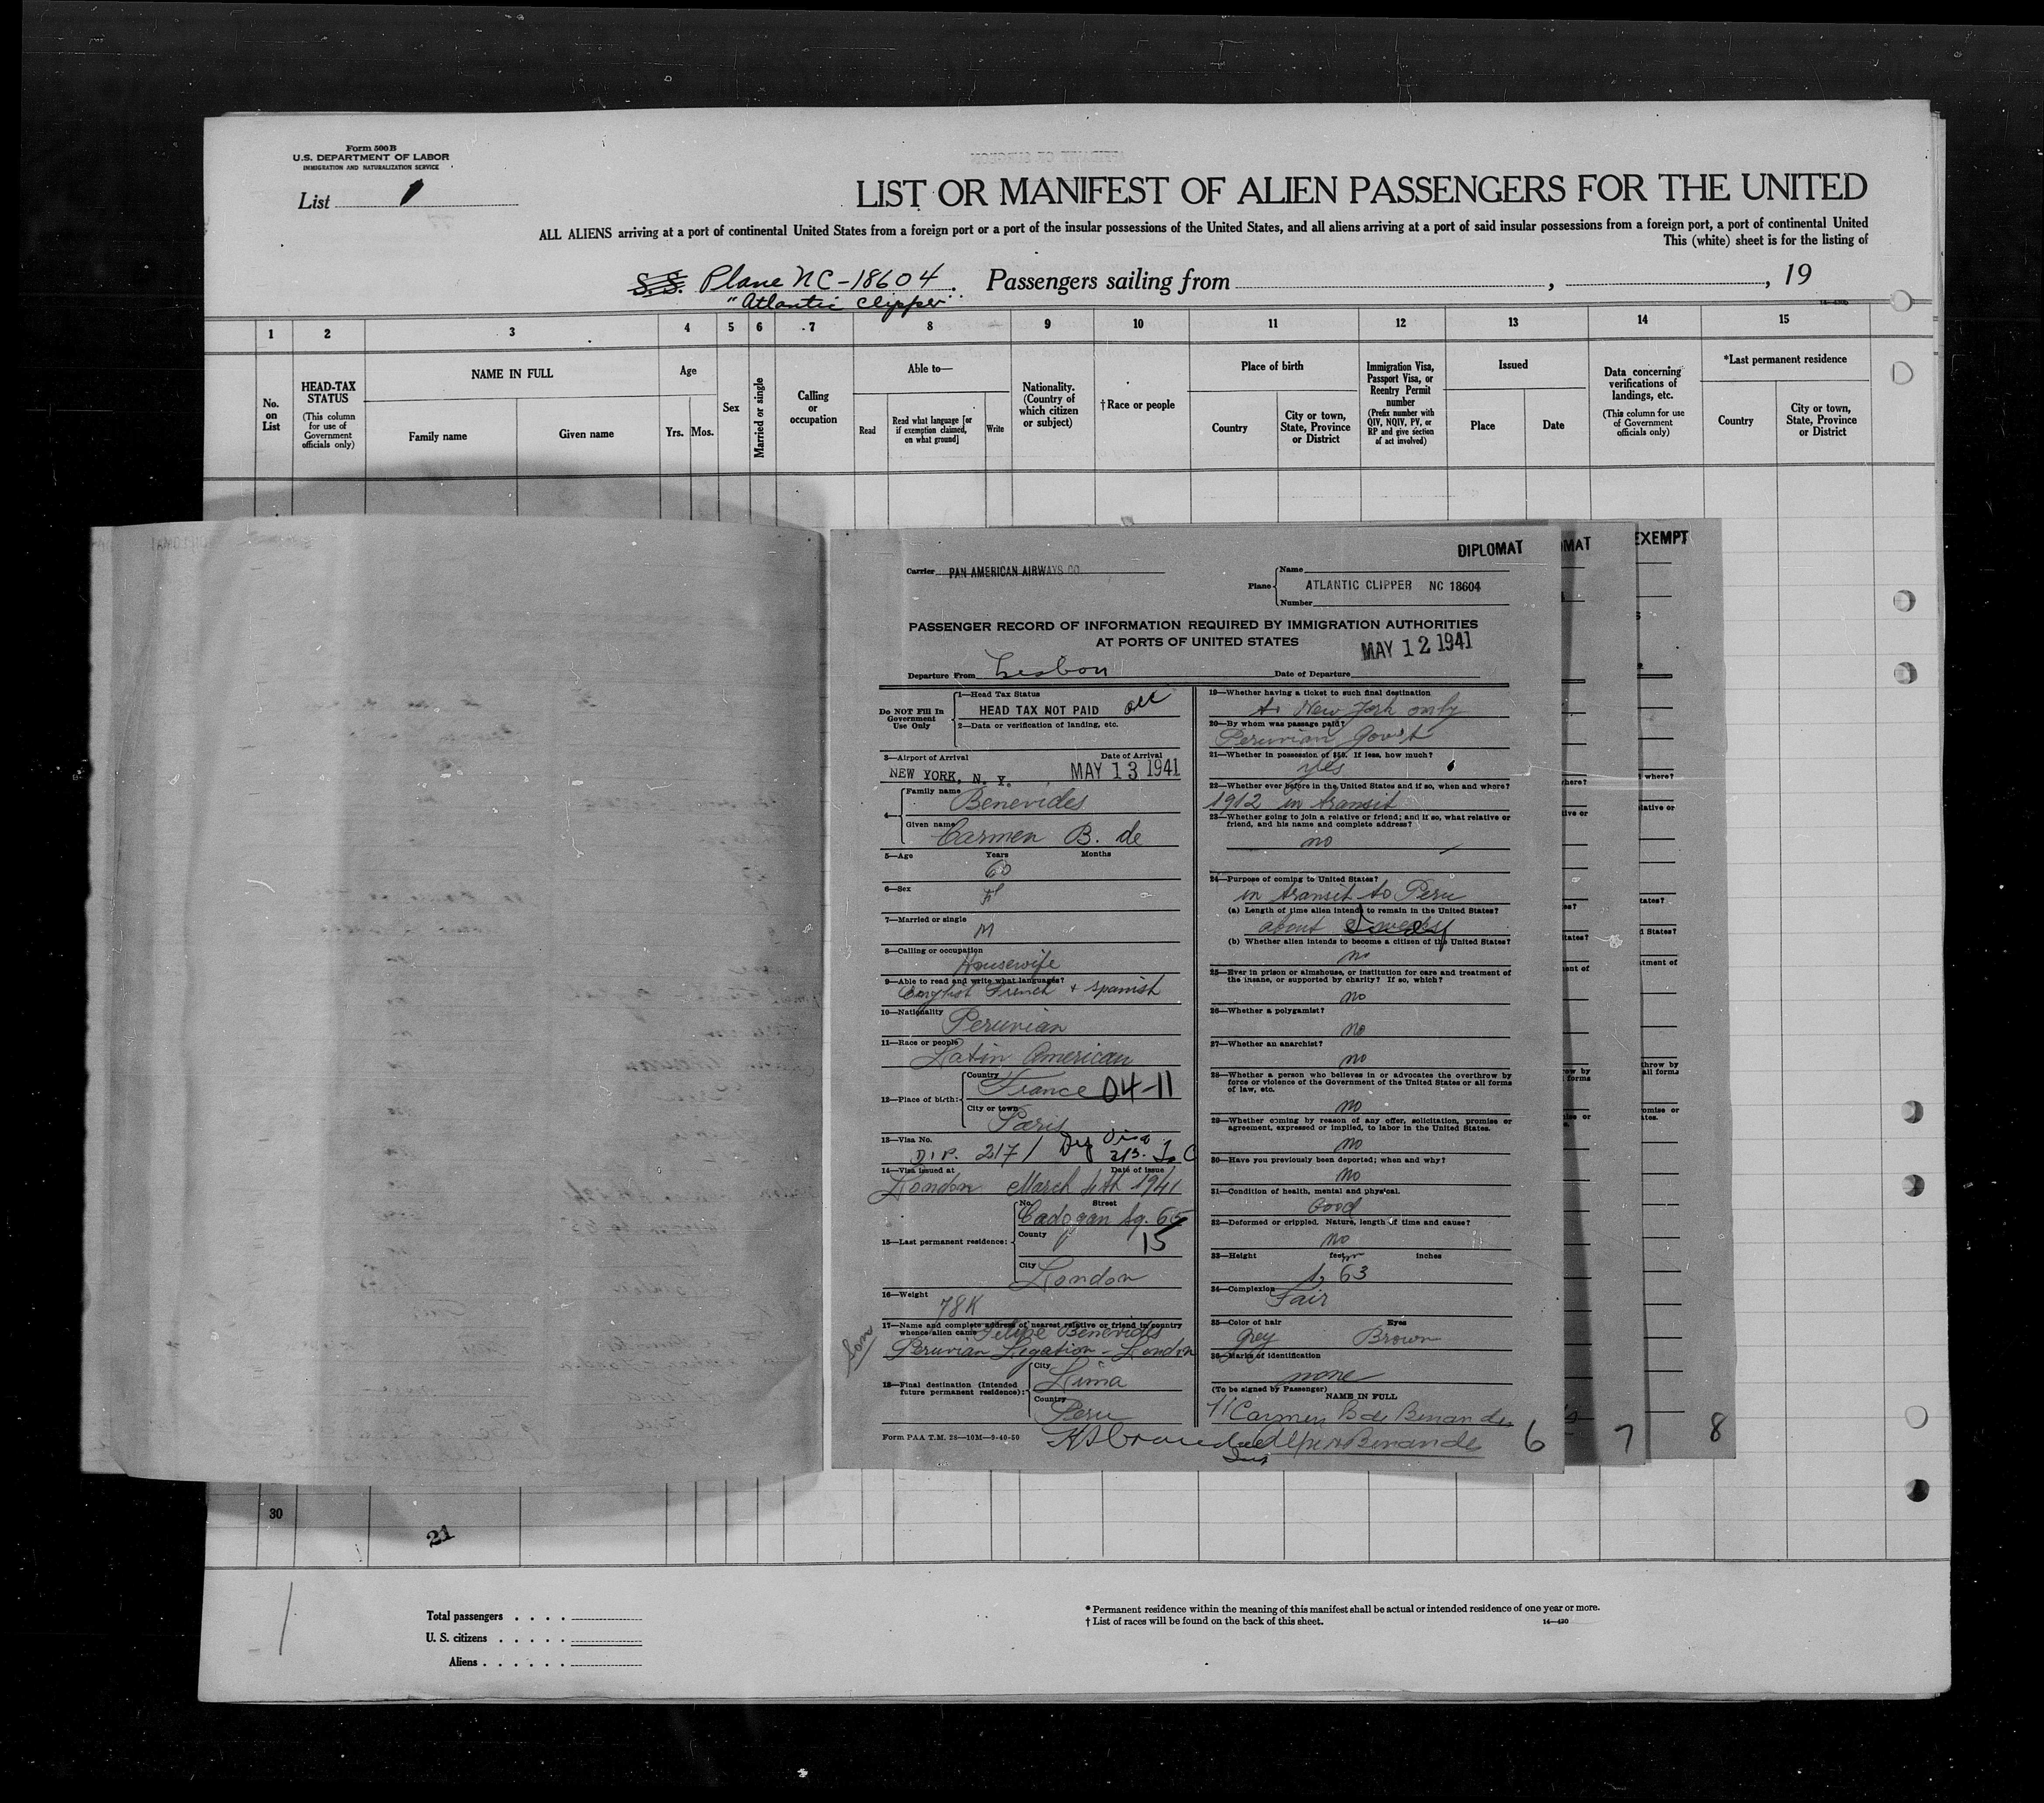 Form 500B
U.S. DEPARTMENT OF LABOR
IMMIGRATION AND NATURALIZATION SERVICE
List 1
LIST OR MANIFEST OF ALIEN PASSENGERS FOR THE UNITED
ALL ALIENS arriving at a port of continental United States from a foreign port or a port of the insular possessions of the United States, and all aliens arriving at a port of said insular possessions from a foreign port, a port of continental United
This (white) sheet is for the listing of
S.S. Plane NC-18604. Passengers sailing from , , 19
"Atlantic Clipper"
1 2 3 4 5 6 7 8 9 10 11 12 13 14 15
No. on List
HEAD-TAX STATUS
(This column for use of Government officials only)
NAME IN FULL
Family name
Given name
Age
Yrs.
Mos.
Sex
Married or single
Calling or occupation
Able to—
Read
Read what language [or if exemption claimed, on what ground]
Write
Nationality. (Country of which citizen or subject)
†Race or people
Place of birth
Country
City or town, State, Province or District
Immigration Visa, Passport Visa, or Reentry Permit number
(Prefix number with QIV, NQIV, PV, or RP and give section of act involved)
Issued
Place
Date
Data concerning verifications of landings, etc.
(This column for use of Government officials only)
*Last permanent residence
Country
City or town, State, Province or District
DIPLOMAT
MAT
EXEMPT
Carrier PAN AMERICAN AIRWAYS CO.
Plane
Name
ATLANTIC CLIPPER NC 18604
Number
PASSENGER RECORD OF INFORMATION REQUIRED BY IMMIGRATION AUTHORITIES
AT PORTS OF UNITED STATES
MAY 12 1941
Departure From Lisbon Date of Departure
Do NOT Fill In Government Use Only
1—Head Tax Status
HEAD TAX NOT PAID
2—Data or verification of landing, etc.
3—Airport of Arrival Date of Arrival
NEW YORK, N. Y. MAY 13 1941
4—
Family name Benevides
Given name Carmen B. de
5—Age Years Months
60
6—Sex
F
7—Married or single
M
8—Calling or occupation
Housewife
9—Able to read and write what languages?
English French + Spanish
10—Nationality
Peruvian
11—Race or people
Latin American
12—Place of birth:
Country
France 04-11
City or town
Paris
13—Visa No.
DIP. 217/ Dip Visa 3/3.
14—Visa issued at Date of issue
London March 4th 1941
15—Last permanent residence:
No. Street
Cadogan Sq. 65
County
15
City
London
16—Weight
78K
17—Name and complete address of nearest relative or friend in country whence alien came
Felipe Benevides
Son
Peruvian Legation - London
18—Final destination (Intended future permanent residence):
City
Lima
Country
Peru
Form PAA T.M. 28—10M—9-40-50
19—Whether having a ticket to such final destination
to New York only
20—By whom was passage paid?
Peruvian Gov't
21—Whether in possession of $50. If less, how much?
yes
22—Whether ever before in the United States and if so, when and where?
1912 in transit
23—Whether going to join a relative or friend; and if so, what relative or friend, and his name and complete address?
no
24—Purpose of coming to United States?
in transit to Peru
(a) Length of time alien intends to remain in the United States?
about
(b) Whether alien intends to become a citizen of the United States?
no
25—Ever in prison or almshouse, or institution for care and treatment of the insane, or supported by charity? If so, which?
no
26—Whether a polygamist?
no
27—Whether an anarchist?
no
28—Whether a person who believes in or advocates the overthrow by force or violence of the Government of the United States or all forms of law, etc.
no
29—Whether coming by reason of any offer, solicitation, promise or agreement, expressed or implied, to labor in the United States.
no
30—Have you previously been deported; when and why?
no
31—Condition of health, mental and physical.
Good
32—Deformed or crippled. Nature, length of time and cause?
no
33—Height feet inches
1,63
34—Complexion
Fair
35—Color of hair Eyes
Grey Brown
36—Marks of identification
none
(To be signed by Passenger)
NAME IN FULL
Carmen B de
6 7 8
30
21
Total passengers . . . .
U. S. citizens . . . . .
Aliens . . . . . .
* Permanent residence within the meaning of this manifest shall be actual or intended residence of one year or more.
† List of races will be found on the back of this sheet.
14—430